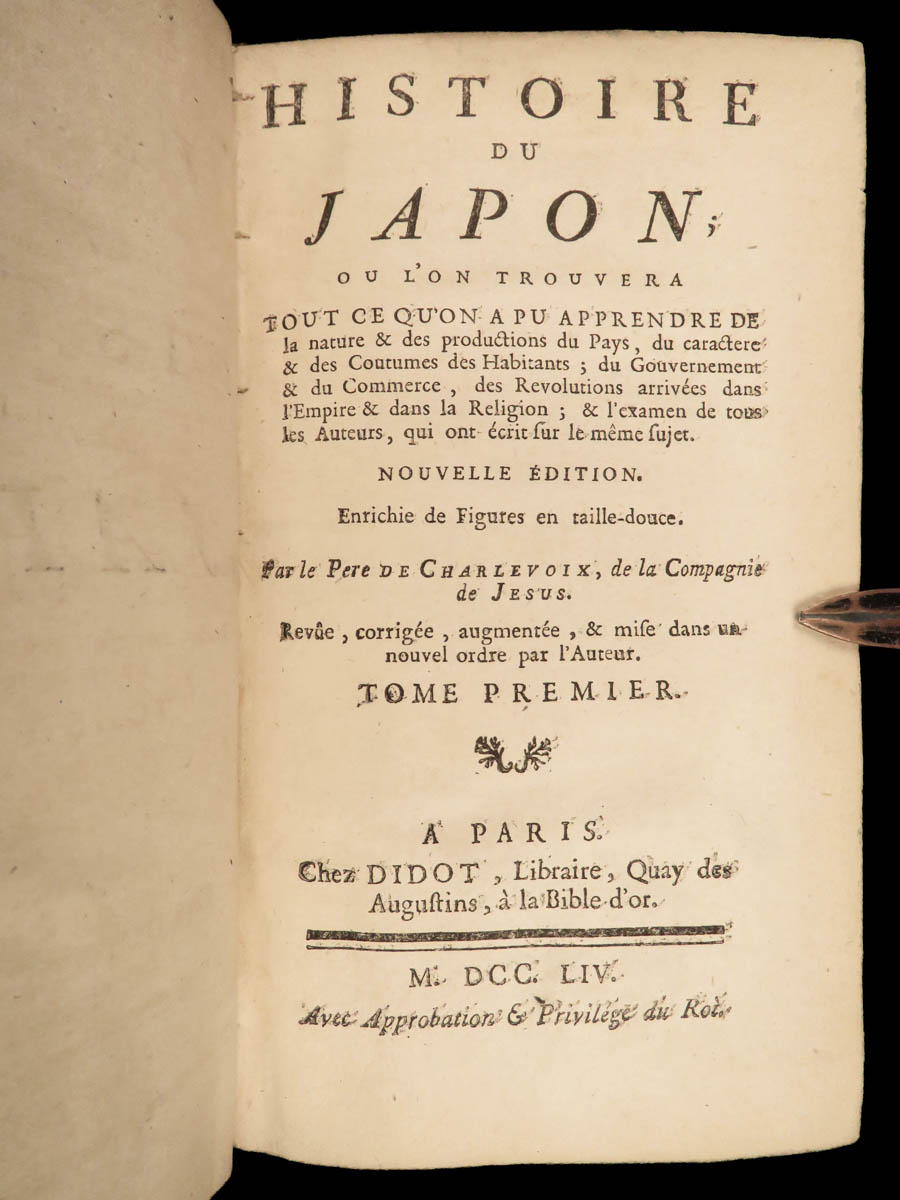 HISTOIRE
DU
JAPON;
OU L'ON TROUVERA
TOUT CE QU'ON A PU APPRENDRE DE
la nature & des productions du Pays, du caractere
& des Coutumes des Habitants; du Gouvernement
& du Commerce, des Revolutions arrivées dans
l'Empire & dans la Religion; & l'examen de tous
les Auteurs, qui ont écrit ſur le même ſujet.
NOUVELLE ÉDITION.
Enrichie de Figures en taille-douce.
Par le Pere DE CHARLEVOIX, de la Compagnie
de JESUS.
Revûe, corrigée, augmentée, & miſe dans un
nouvel ordre par l'Auteur.
TOME PREMIER.
A PARIS.
Chez DIDOT, Libraire, Quay des
Auguſtins, à la Bible d'or.
M. DCC. LIV.
Avec Approbation & Privilége du Roi.